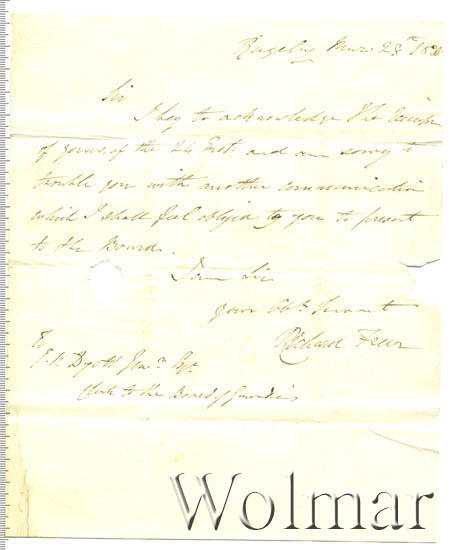 Rugeley Mar: 28th
Sir
I beg to acknowledge the Receipt
of yours, of the 24 Inst: and am sorry to
trouble you with another communication
which I shall feel obliged to you to present
to the Board.
I am Sir
your Obt. Servant
Richard
To
Dyott Junr. Esq.
Clerk to the Board of Guardians
Wolmar